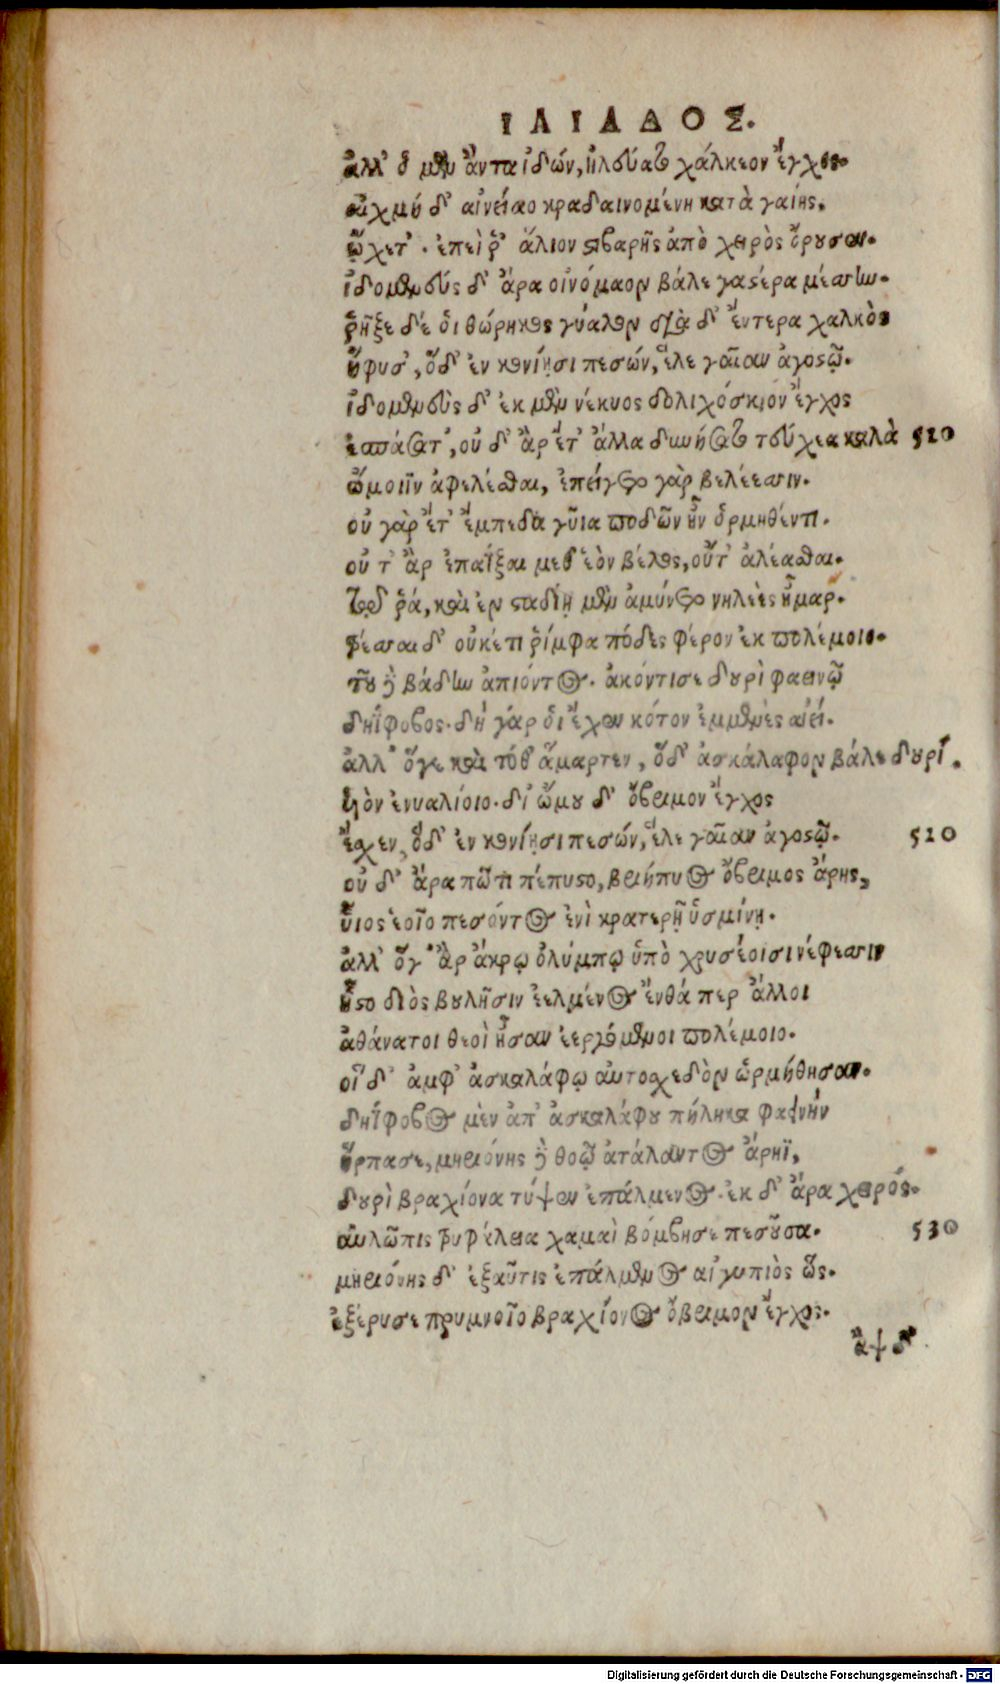 ΙΛΙΑΔΟΣ.
ἀλλ' ὁ μὲν ἄντα ἰδών, ἠλεύατο χάλκεον ἔγχος.
αἰχμὴ δ' αἰνείαο κραδαινομένη κατὰ γαίης.
ᾤχετ'. ἐπεὶ ῥ' ἅλιον στιβαρῆς ἀπὸ χειρὸς ὄρουσεν.
ἰδομενεύς δ' ἄρα οἰνόμαον βάλε γαστέρα μέσσην.
ῥῆξε δέ οἱ θώρηκος γύαλον διὰ δ' ἔντερα χαλκὸς
ἤφυσ', ὅδ' ἐν κονίησι πεσών, ἕλε γαῖαν ἀγοστῷ.
ἰδομενεὺς δ' ἐκ μὲν νέκυος δολιχόσκιον ἔγχος
ἐσπάσατ', οὐ δ' ἂρ ἔτ' ἄλλα δυνήσατο τεύχεα καλὰ 510
ὤμοιϊν ἀφελέσθαι, ἐπείγετο γὰρ βελέεσσιν.
οὐ γὰρ ἔτ' ἔμπεδα γυῖα ποδῶν ἦν ὁρμηθέντι.
οὐ τ' ἂρ ἐπαΐξαι μεθ' ἑὸν βέλος, οὔτ' ἀλέασθαι.
τῷ ῥά, καὶ ἐν σταδίῃ μὲν ἀμύνετο νηλεὲς ἦμαρ.
τρέσσαι δ' οὐκέτι ῥίμφα πόδες φέρον ἐκ πολέμοιο.
τοῦ δὲ βάδην ἀπιόντος. ἀκόντισε δουρὶ φαεινῷ
δηΐφοβος. δὴ γάρ οἱ ἔχεν κότον ἐμμενὲς αἰεί.
ἀλλ' ὅγε καὶ τόθ' ἅμαρτεν, ὅδ' ἀσκάλαφον βάλε δουρί.
υἱὸν ἐνυαλίοιο. δι' ὤμου δ' ὄβριμον ἔγχος
ἔσχεν, ὅδ' ἐν κονίησι πεσών, ἕλε γαῖαν ἀγοστῷ. 520
οὐ δ' ἄρα πῶ τι πέπυστο, βριήπυος ὄβριμος ἄρης,
υἷος ἑοῖο πεσόντος ἐνὶ κρατερῇ ὑσμίνῃ.
ἀλλ' ὅγ' ἂρ ἄκρῳ ὀλύμπῳ ὑπὸ χρυσέοισι νέφεσσιν
ἧστο διὸς βουλῆσιν ἐελμένος ἔνθά περ ἄλλοι
ἀθάνατοι θεοὶ ἦσαν ἐεργόμενοι πολέμοιο.
οἳ δ' ἀμφ' ἀσκαλάφῳ αὐτοσχεδὸν ὡρμήθησαν.
δηΐφοβος μὲν ἀπ' ἀσκαλάφου πήληκα φαεινήν
ἥρπασε, μηριόνης δὲ θοῷ ἀτάλαντος ἄρηϊ,
δουρὶ βραχίονα τύψεν ἐπάλμενος. ἐκ δ' ἄρα χειρός.
αὐλῶπις τρυφάλεια χαμαὶ βόμβησε πεσοῦσα. 530
μηριόνης δ' ἐξαῦτις ἐπάλμενος αἰγυπιὸς ὥς.
ἐξέρυσε πρυμνοῖο βραχίονος ὄβριμον ἔγχος.
ἂψ δ'
Digitalisierung gefördert durch die Deutsche Forschungsgemeinschaft - DFG